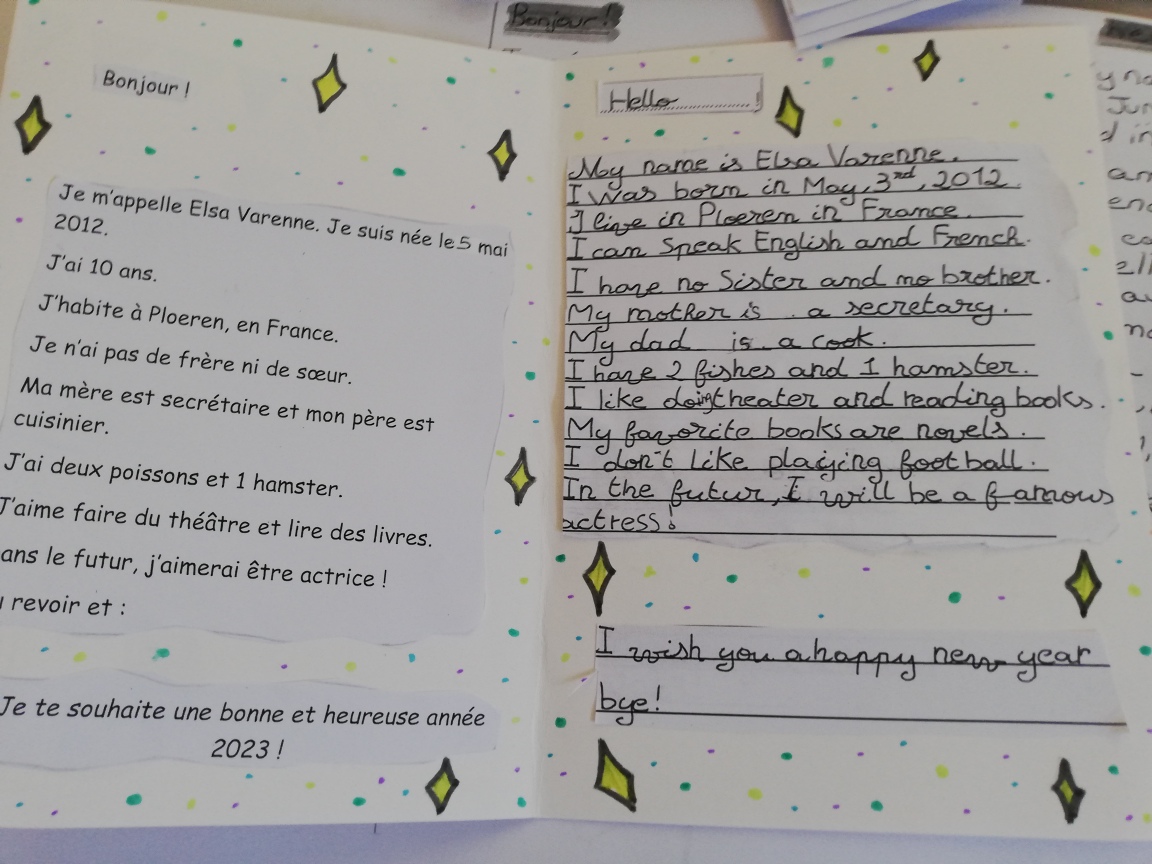 Bonjour !
Bonjour !
Je m'appelle Elsa Varenne. Je suis née le 5 mai
2012.
J'ai 10 ans.
J'habite à Ploeren, en France.
Je n'ai pas de frère ni de sœur.
Ma mère est secrétaire et mon père est
cuisinier.
J'ai deux poissons et 1 hamster.
J'aime faire du théâtre et lire des livres.
ans le futur, j'aimerai être actrice !
revoir et :
Je te souhaite une bonne et heureuse année
2023 !
Hello !
My name is Elsa Varenne.
I was born in May, 3rd, 2012.
I live in Ploeren in France.
I can speak English and French.
I have no Sister and no brother.
My mother is a secretary.
My dad is a cook.
I have 2 fishes and 1 hamster.
I like doing theater and reading books.
My favorite books are novels.
I don't like playing football.
In the futur, I will be a famous
actress!
I wish you a happy new year
bye!